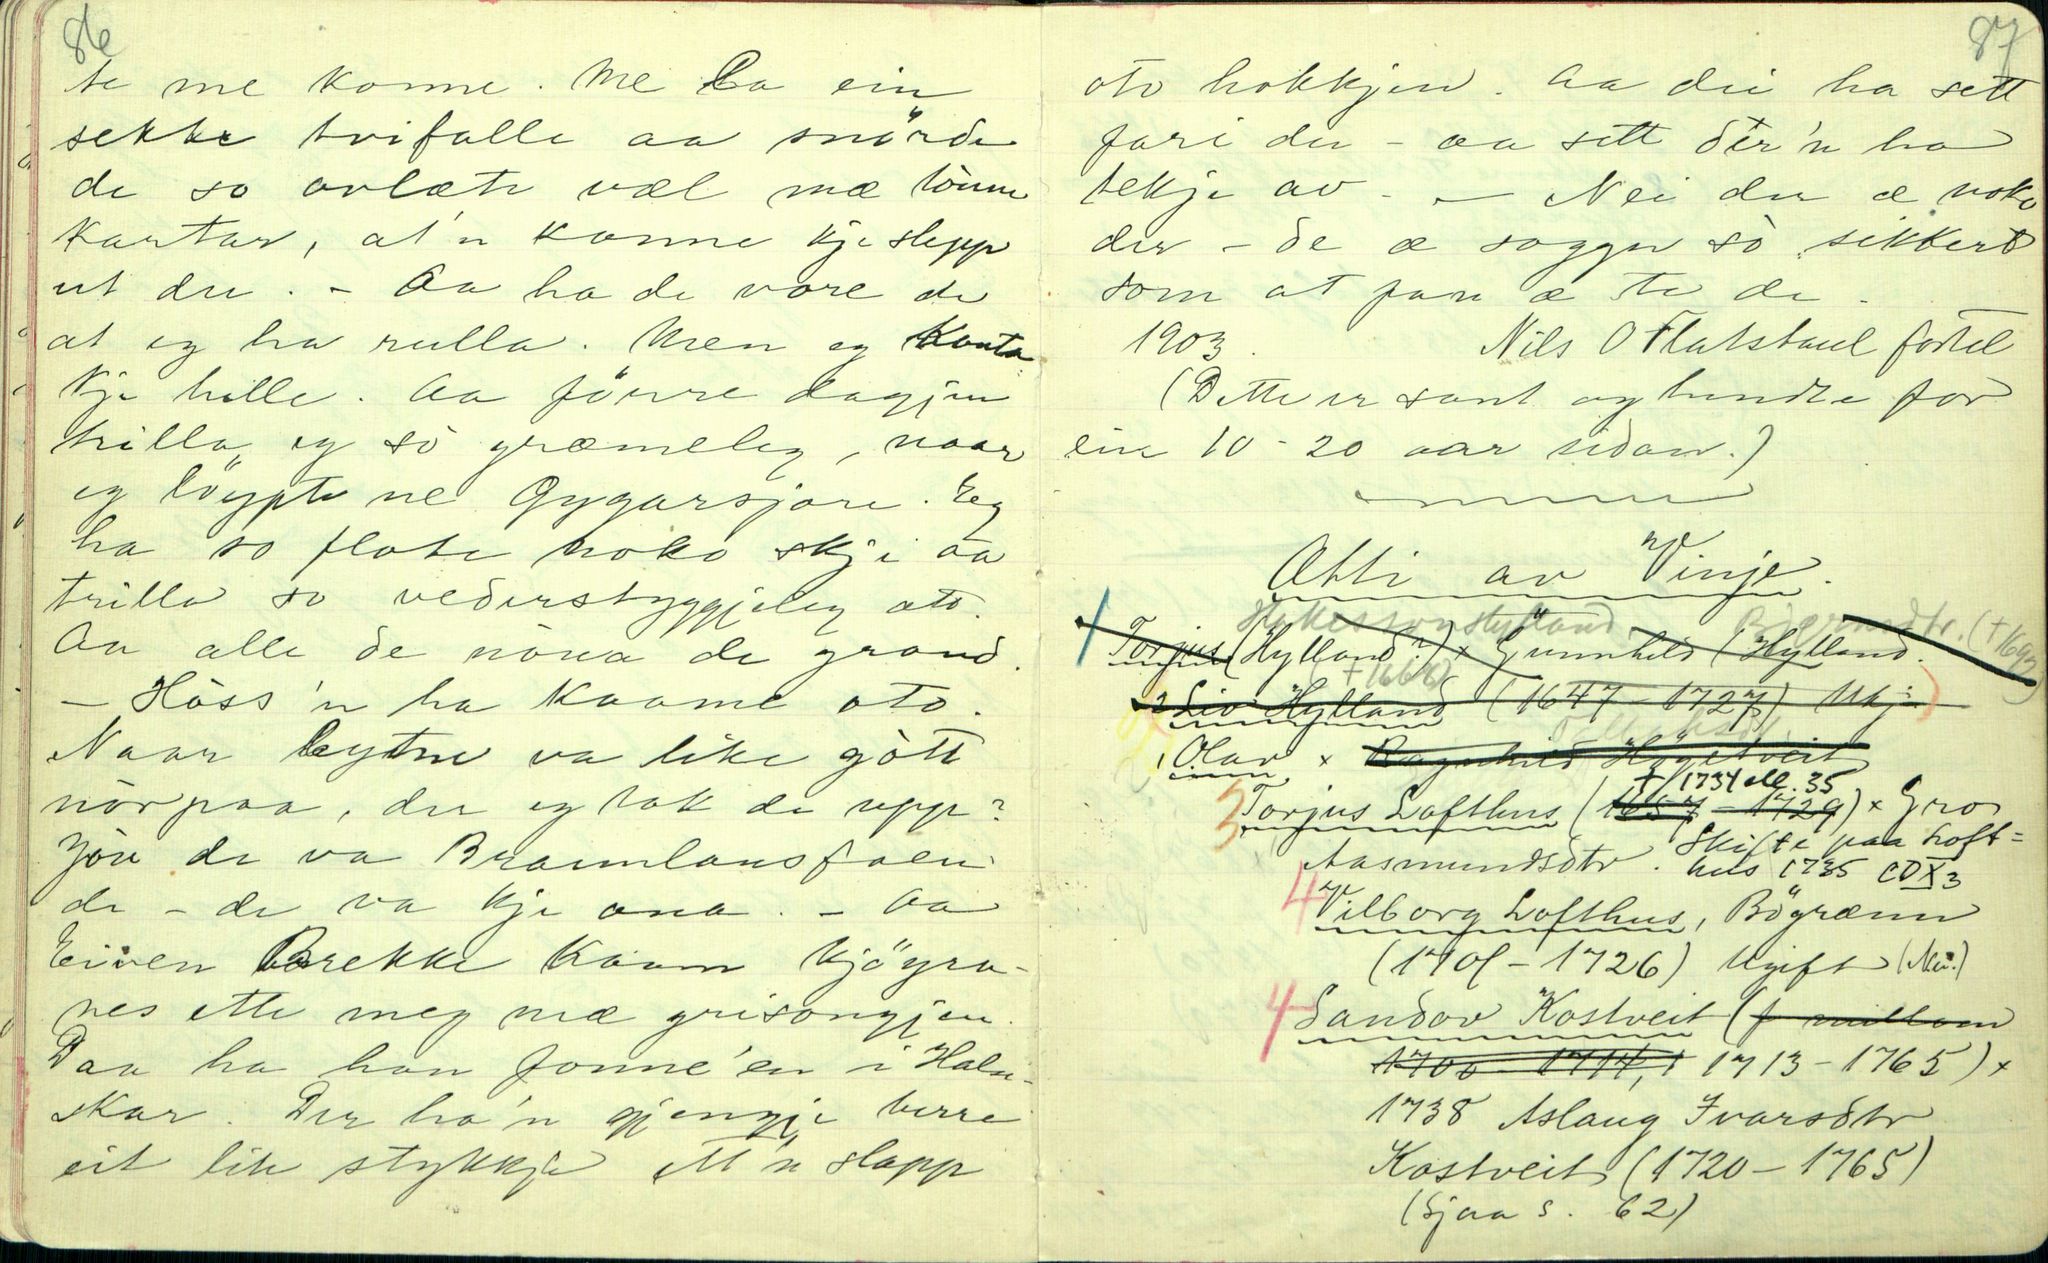 86
te me konne. Me la ein
sekke tvifalle aa snörde
de so ovlæte væl mæ
kartar, at'n konne kje slepp
ut du. - Aa ha de vore de
at eg ha rulla. Men eg
kje hille. Aa dagjen
trilla eg sò græmeleg, naar
eg löypte ne Gygarsjore. Eg
ha so flote noko skje aa
trilla so vederstyggjeleg oto.
Aa alle de de grand.
- Hòss'n ha kaame oto.
Naar lytne va like gòtt
nörpaa, der eg tok de upp?
Jòu de va Braunlansfaen
de - de va kje ana. - Aa
Eiven Brekke kaam kjöyra-
nes ette meg mæ grisongjen.
Daa ha han fonne'en i
skar. Der ha'n gjengje berre
eit lite stykkje ett'n slapp
87
oto hokkjen. Aa dei ha sett
fari der - aa sett der'n ha
tekje av. - Nei der æ noko
der - de æ soggu sò sikkert
som at fan æ te de.
1903. Nils O Flatstaul fortel
(Dette er sant og hendte for
ein 10 - 20 aar sidan.)
Ætti av Vinje.
Hylland Bjørnsdtr. (†1693)
1 Torjus (Hylland?) × Gunnhild (Hylland.
2 Liv Hylland (1647 - 1727) Ukj:
1 Olav × Ragnhild Høgetveit
† 1734 ell. 35
3 Torjus Lofthus (1657 - 1729) × Gro
Aasmundsdtr. Skifte paa Loft=
hus 1735 CDX3
4 Vilborg Lofthus, Bögrænn
(1701 - 1726) Ugift (Nei.)
4 Sandov Kostveit (f millom
1700 - 1714, † 1713 - 1765) ×
1738 Aslaug Ivarsdtr
Kostveit (1720 - 1765)
(Sjaa s. 62)